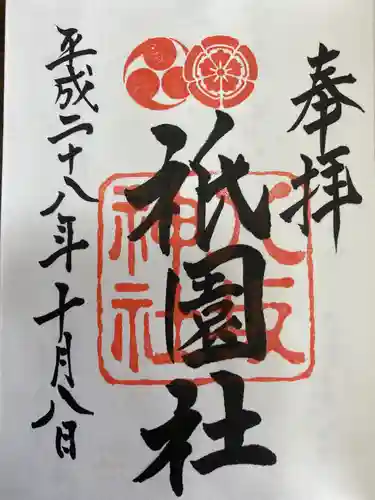 奉拝
八坂神社
祇園社
平成二十八年十月八日